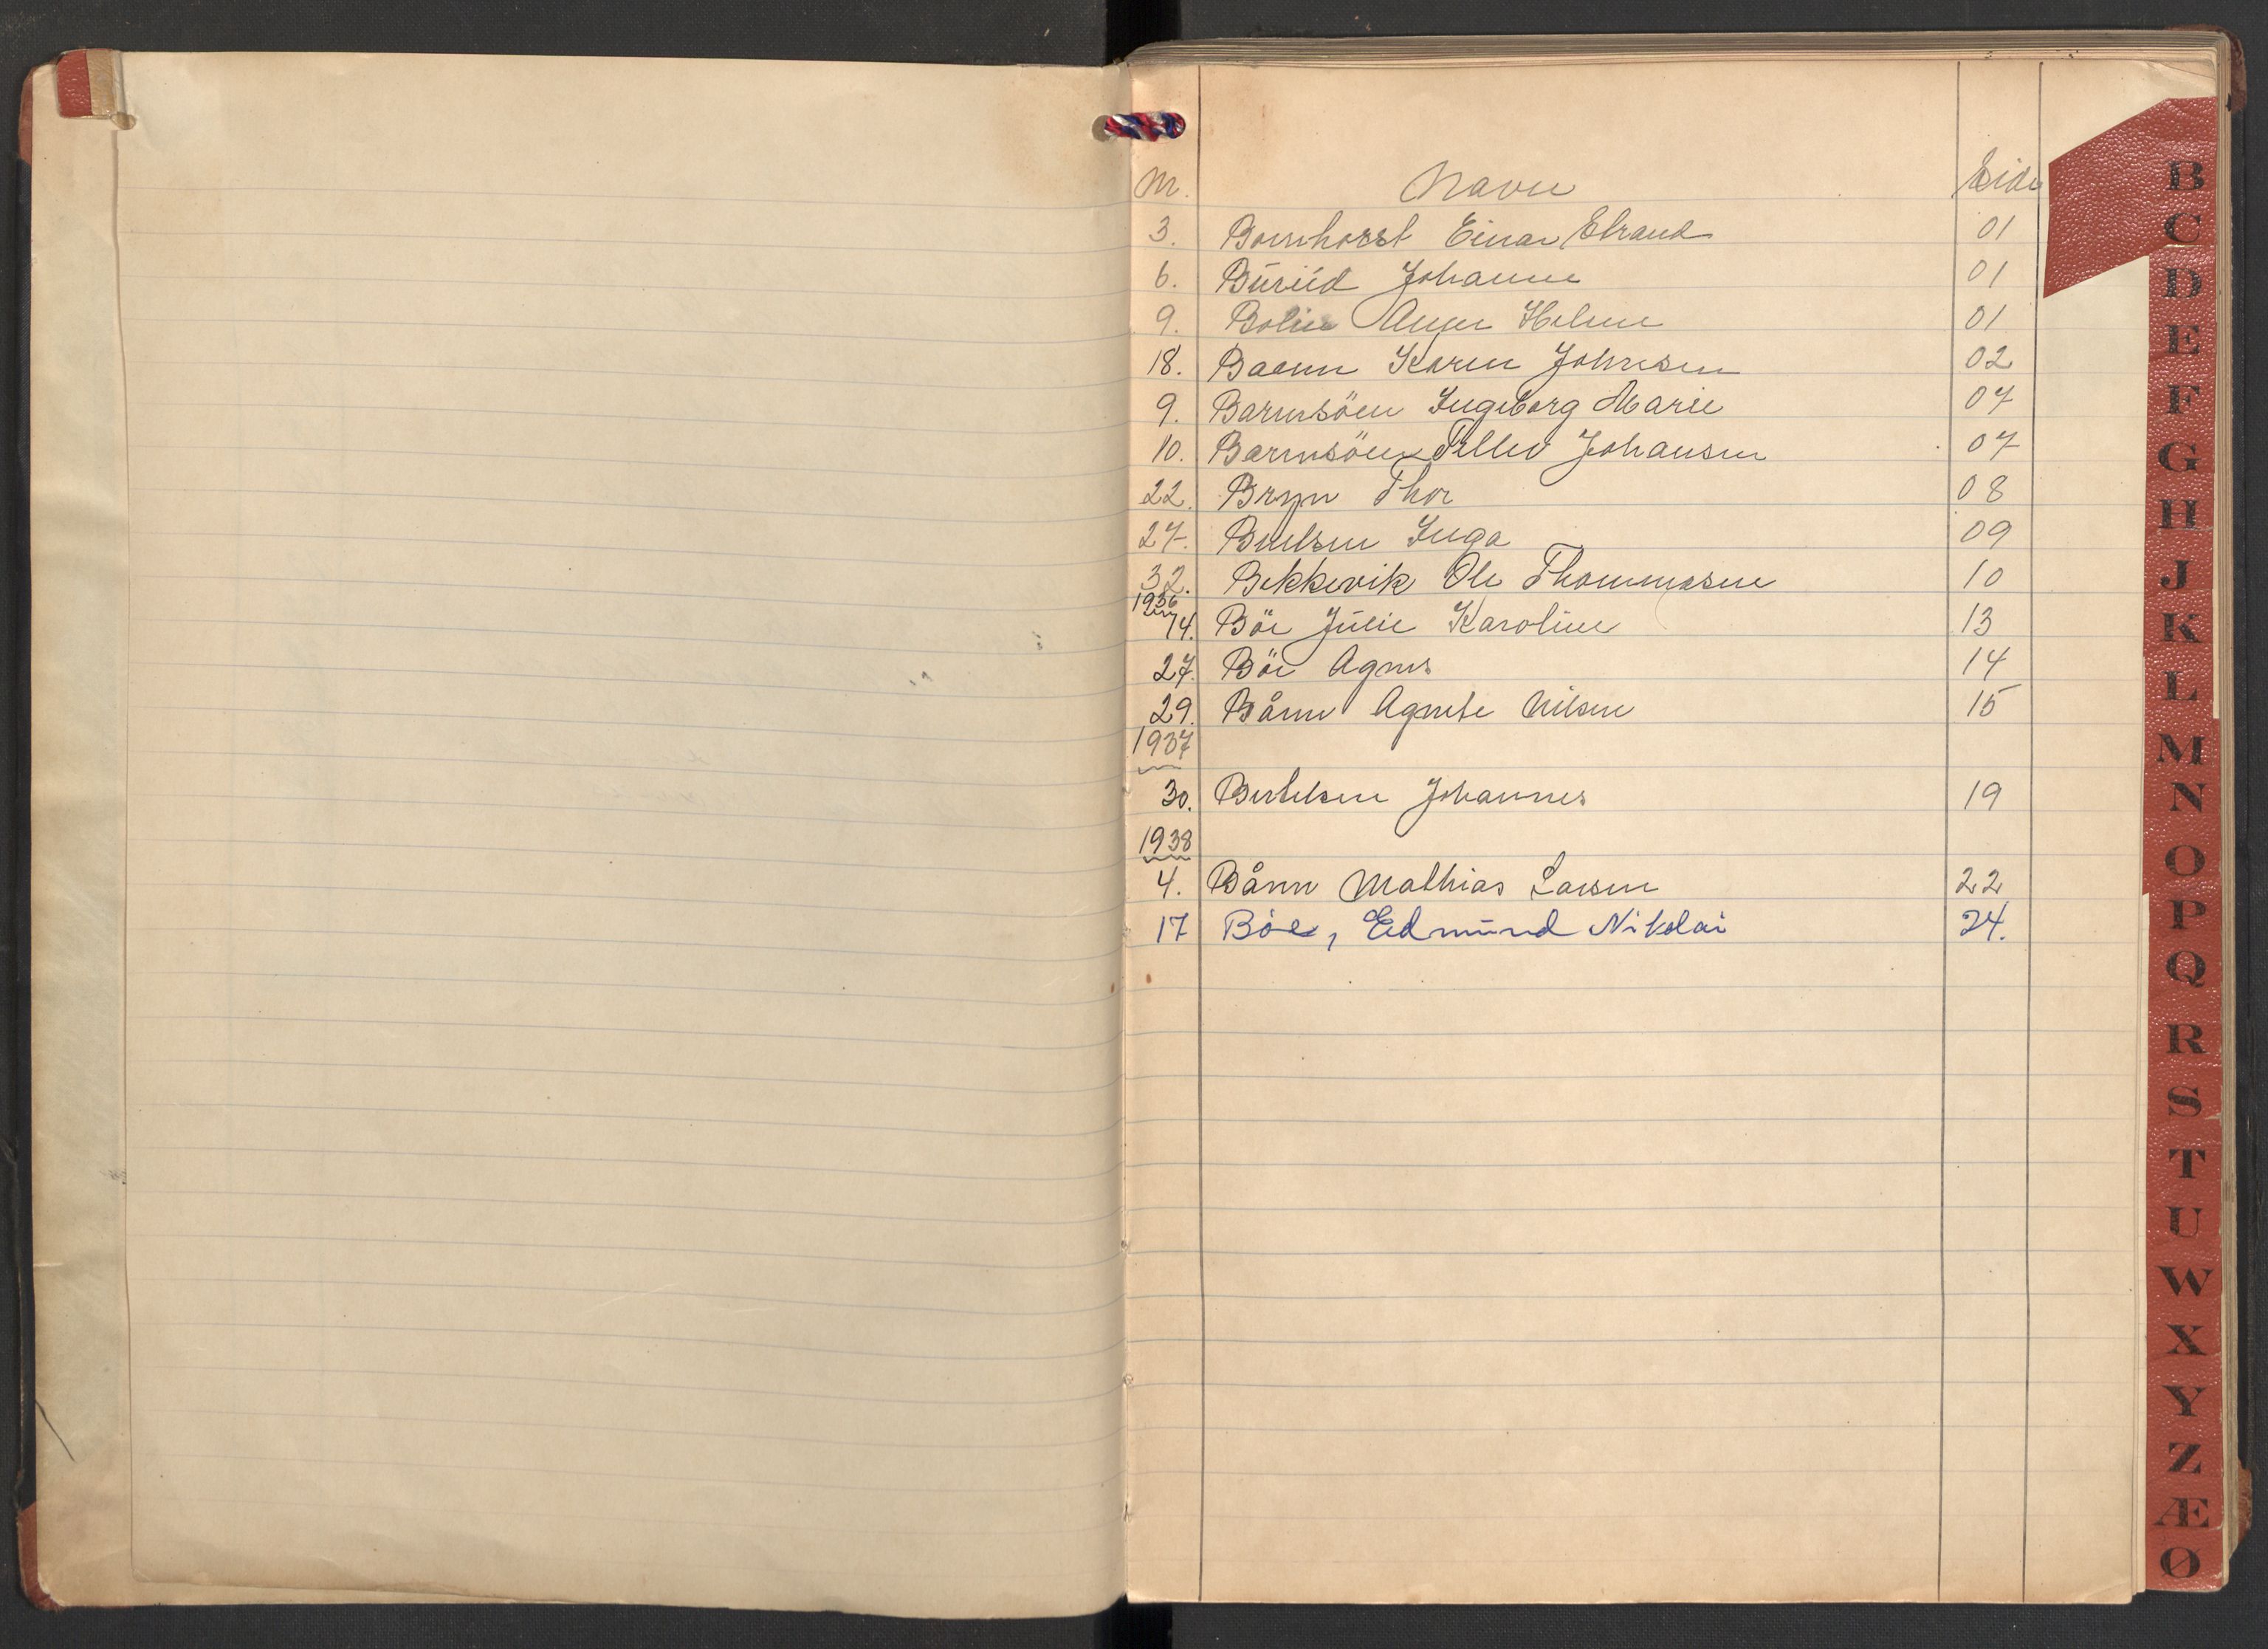 Nr. Navn Side
3. Bornhorst Einar Strand 01
6. Buruud Johanne 01
9. Bolin Helene 01
18. Baann Karen Johnsen 02
9. Barmsöen Ingeborg Marie 07
10. Barmsöen Tellev Johansen 07
22. Bryn Thor 08
27. Inga 09
32. Bekkevik Ole Thommasen 10
1936
14. Böe Julie Karoline 13
27. Böe Agnes 14
29. Bånn Agnete Nilsen 15
1937
30. Bertelsen Johannes 19
1938
4. Bånn Mathias Larsen 22
17 Böe, Edmund Nikolai 24.
B
C
D
E
F
G
H
J
K
L
M
N
O
P
Q
R
S
T
U
W
X
Y
Z
Æ
Ø